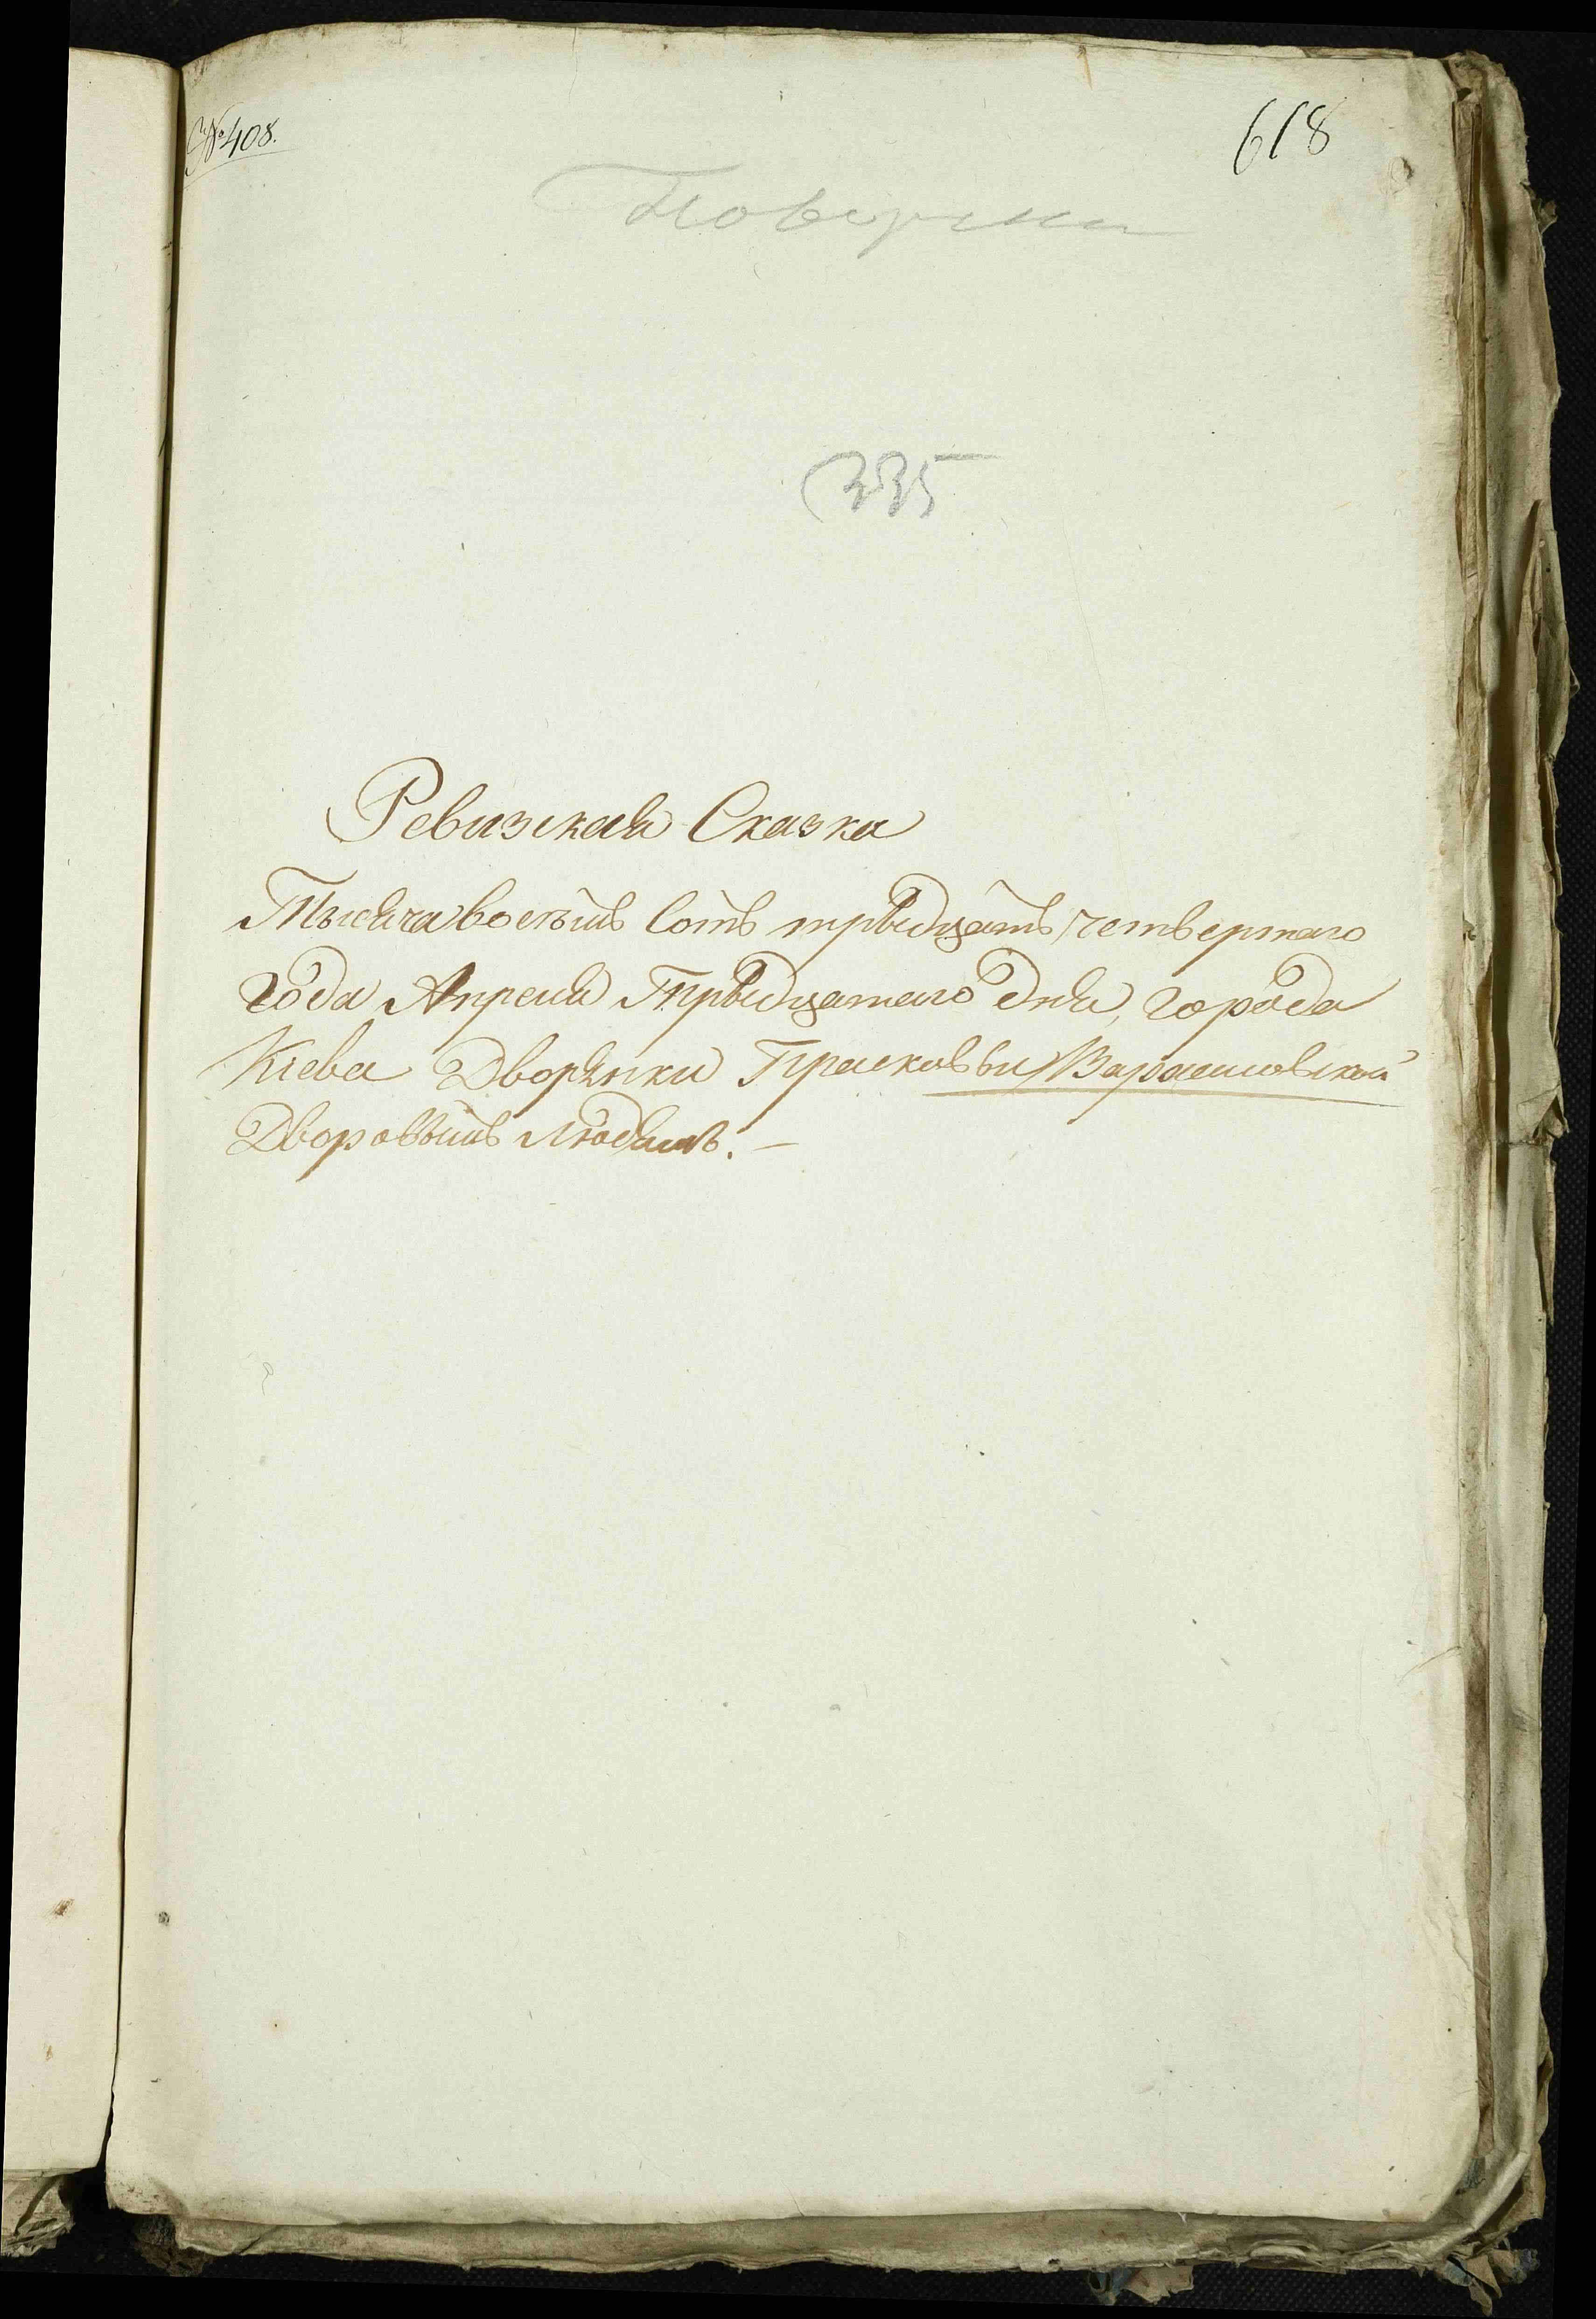 № 408.
618
Поверены
335
Ревизская Сказка
Тысяча восемь сотъ трыдцать четвертаго
года Апреля Трыдцатаго дня, города
Кіева Дворянки Прасковьи
Дворовымъ Людямъ. —